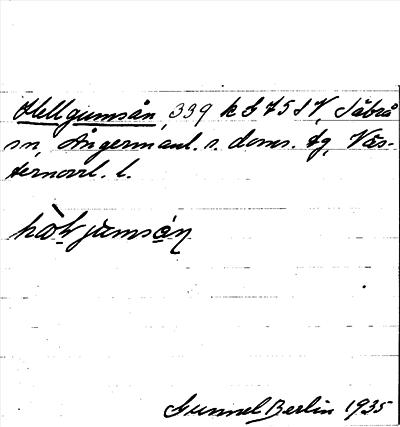 Hellgumsån, 339 k S 75 S V, Säbrå
sn, Ångermanl. s. doms. tg, Väs-
ternorrl. l.
Gunnel Berlin 1935